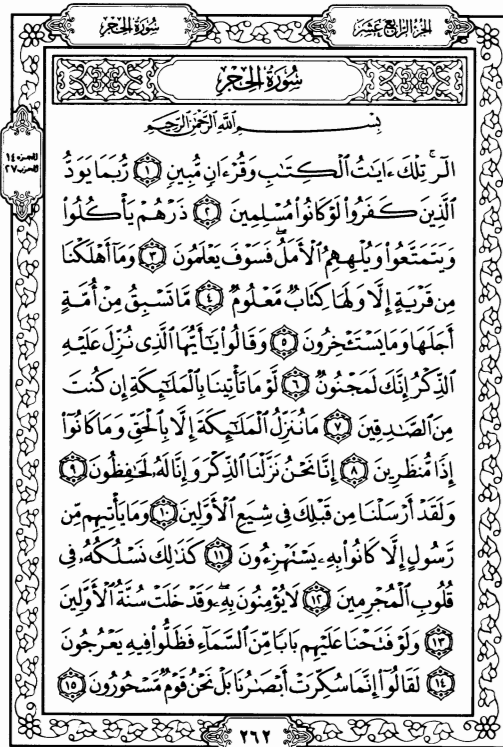 الجزء الرابع عشر
سورة الحجر
سُورَةُ الحِجْر
الجزء ١٤
الحزب ٢٧
بِسْمِ اللَّهِ الرَّحْمَٰنِ الرَّحِيمِ
الٓر ۚ تِلْكَ ءَايَٰتُ ٱلْكِتَٰبِ وَقُرْءَانٍ مُّبِينٍ ١ رُّبَمَا يَوَدُّ
ٱلَّذِينَ كَفَرُوا۟ لَوْ كَانُوا۟ مُسْلِمِينَ ٢ ذَرْهُمْ يَأْكُلُوا۟
وَيَتَمَتَّعُوا۟ وَيُلْهِهِمُ ٱلْأَمَلُ ۖ فَسَوْفَ يَعْلَمُونَ ٣ وَمَآ أَهْلَكْنَا
مِن قَرْيَةٍ إِلَّا وَلَهَا كِتَابٌ مَّعْلُومٌ ٤ مَّا تَسْبِقُ مِنْ أُمَّةٍ
أَجَلَهَا وَمَا يَسْتَـْٔخِرُونَ ٥ وَقَالُوا۟ يَٰٓأَيُّهَا ٱلَّذِى نُزِّلَ عَلَيْهِ
ٱلذِّكْرُ إِنَّكَ لَمَجْنُونٌ ٦ لَّوْ مَا تَأْتِينَا بِٱلْمَلَٰٓئِكَةِ إِن كُنتَ
مِنَ ٱلصَّٰدِقِينَ ٧ مَا نُنَزِّلُ ٱلْمَلَٰٓئِكَةَ إِلَّا بِٱلْحَقِّ وَمَا كَانُوٓا۟
إِذًا مُّنظَرِينَ ٨ إِنَّا نَحْنُ نَزَّلْنَا ٱلذِّكْرَ وَإِنَّا لَهُۥ لَحَٰفِظُونَ ٩
وَلَقَدْ أَرْسَلْنَا مِن قَبْلِكَ فِى شِيَعِ ٱلْأَوَّلِينَ ١٠ وَمَا يَأْتِيهِم مِّن
رَّسُولٍ إِلَّا كَانُوا۟ بِهِۦ يَسْتَهْزِءُونَ ١١ كَذَٰلِكَ نَسْلُكُهُۥ فِى
قُلُوبِ ٱلْمُجْرِمِينَ ١٢ لَا يُؤْمِنُونَ بِهِۦ ۖ وَقَدْ خَلَتْ سُنَّةُ ٱلْأَوَّلِينَ
١٣ وَلَوْ فَتَحْنَا عَلَيْهِم بَابًا مِّنَ ٱلسَّمَآءِ فَظَلُّوا۟ فِيهِ يَعْرُجُونَ
١٤ لَقَالُوٓا۟ إِنَّمَا سُكِّرَتْ أَبْصَٰرُنَا بَلْ نَحْنُ قَوْمٌ مَّسْحُورُونَ ١٥
٢٦٢